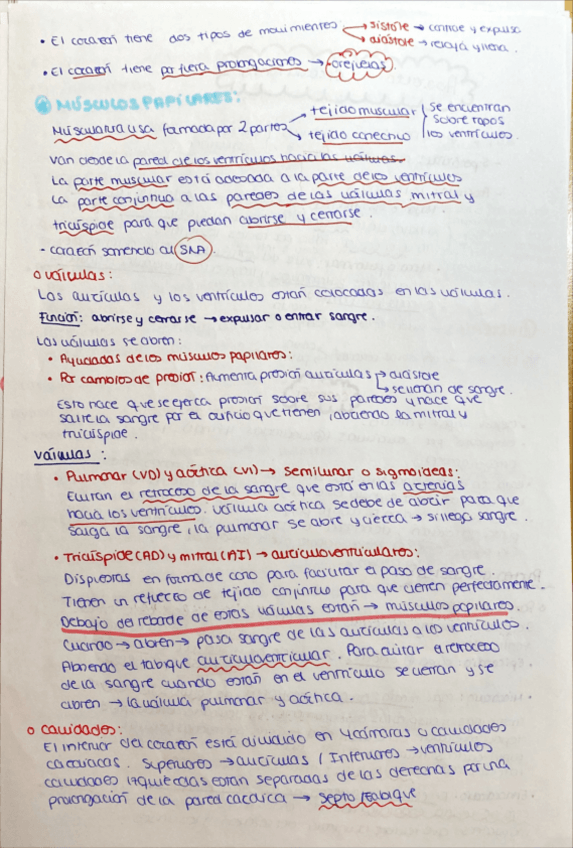 • El corazón tiene dos tipos de movimientos → sístole → contrae y expulsa
→ diástole → relaja y llena.
• El corazón tiene por fuera prolongaciones → orejuelas
MÚSCULOS PAPILARES:
Musculatura lisa formada por 2 partes → tejido muscular
→ tejido conectivo
se encuentran sobre todos los ventrículos.
Van desde la pared de los ventrículos hacia las válvulas.
La parte muscular está adosada a la parte de los ventrículos
La parte conjuntiva a las paredes de las válvulas mitral y
tricúspide para que puedan abrirse y cerrarse.
- corazón somencio al SNA.
o válvulas:
Las aurículas y los ventrículos están colocadas en las válvulas.
Función: abrirse y cerrarse → expulsar o entrar sangre.
Las válvulas se abren:
• Ayudadas de los músculos papilares:
• Por cambios de presión: Aumenta presión aurículas → diástole
→ se llenan de sangre.
Esto hace que se ejerza presión sobre sus paredes y hace que
salte la sangre por el orificio que tienen, abriendo la mitral y
tricúspide.
Válvulas:
• Pulmonar (VD) y aórtica (VI) → semilunar o sigmoideas:
Evitan el retroceso de la sangre que está en las arterias
hacia los ventrículos. Válvula aórtica se debe de abrir para que
salga la sangre, la pulmonar se abre y cierra → si llega sangre.
• Tricúspide (AD) y mitral (AI) → auriculoventriculares:
Dispuestas en forma de cono para facilitar el paso de sangre.
Tienen un refuerzo de tejido conjuntivo para que cierren perfectamente.
Debajo del reborde de estas válvulas están → músculos papilares.
Cuando → abren → pasa sangre de las aurículas a los ventrículos.
Abriendo el tabique auriculoventricular. Para evitar el retroceso
de la sangre cuando están en el ventrículo se cierran y se
abren → la válvula pulmonar y aórtica.
o cavidades:
El interior del corazón está dividido en 4 cámaras o cavidades
cardiacas. Superiores → aurículas / Inferiores → ventrículos
cavidades izquierdas están separadas de las derechas por una
prolongación de la pared cardíaca → septo/tabique